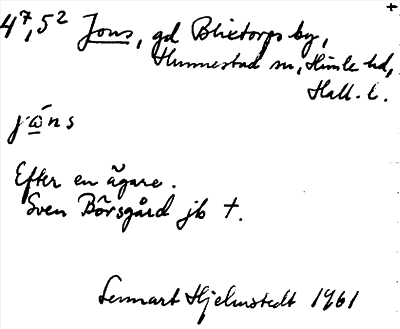 4⁷,5² Jons, gd Blixtorps by,
Hunnestad sn, Himle hd,
Hall. l.
jώns
Efter en ägare.
Sven Börsgård jb †.
Lennart Hjelmstedt 1961